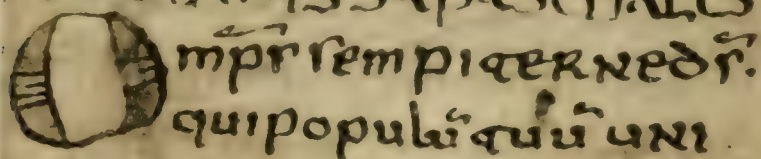 Omp̄s sempiterne d̄s.
qui populū tuū uni